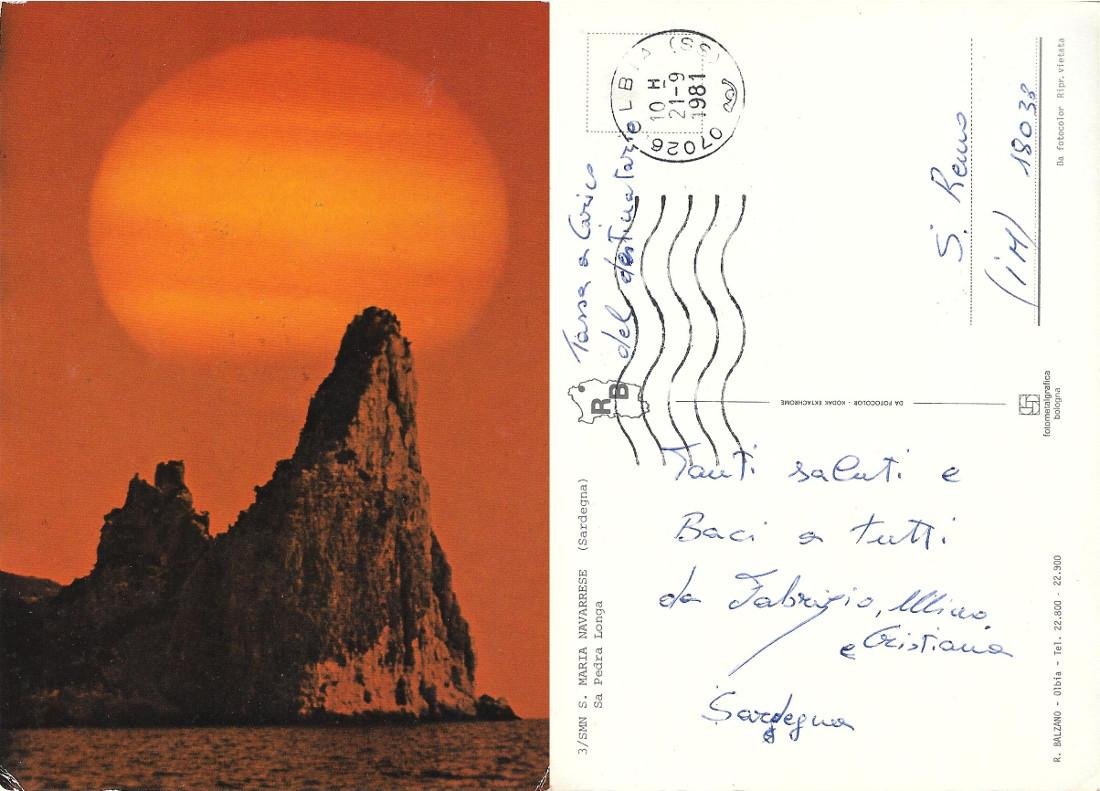 3/SMN S. MARIA NAVARRESE (Sardegna)
Sa Pedra Longa
Tassa a Carico
del destinatario
07026 OLBIA (SS)
10 H
21-9
1981
RB
DA FOTOCOLOR - KODAK EKTACHROME
fotometalgrafica
bologna
Tanti saluti e
Baci a tutti
da Fabrizio, Mino
e Cristiana
Sardegna
S. Remo
(iM) 18038
R. BALZANO - Olbia - Tel. 22.800 - 22.900
Da fotocolor Ripr. vietata